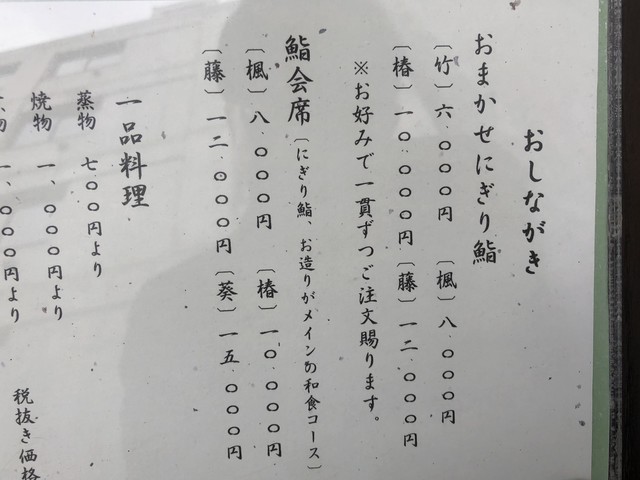 おしながき
おまかせにぎり鮨
〔竹〕六、〇〇〇円 〔楓〕八、〇〇〇円
〔椿〕一〇、〇〇〇円 〔藤〕一二、〇〇〇円
※お好みで一貫ずつご注文賜ります。
鮨会席〔にぎり鮨、お造りがメインの和食コース〕
〔楓〕八、〇〇〇円 〔椿〕一〇、〇〇〇円
〔藤〕一二、〇〇〇円 〔葵〕一五、〇〇〇円
一品料理
蒸物 七〇〇円より
焼物 一、〇〇〇円より
物 一、〇〇〇円より
税抜き価格